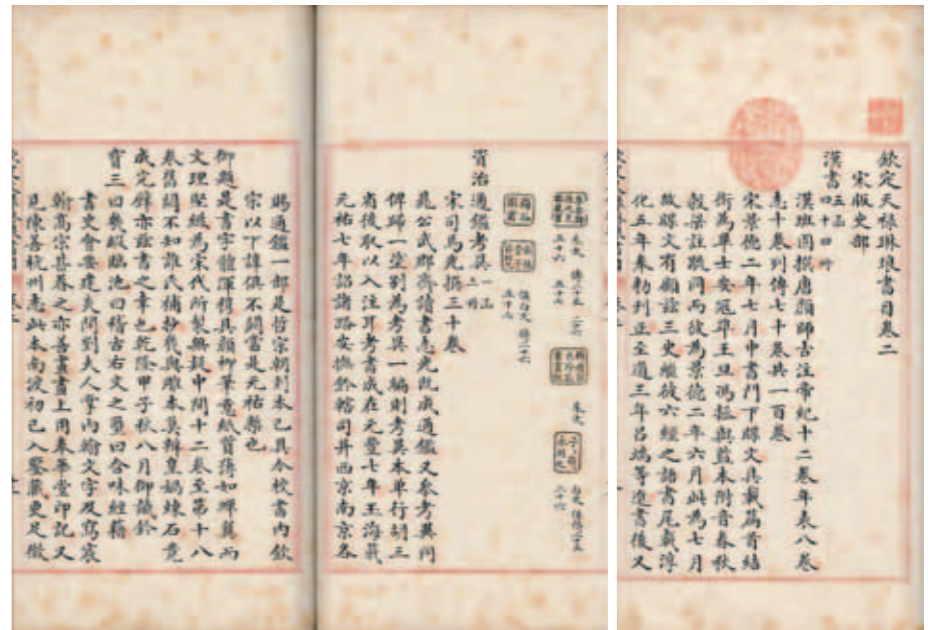 欽定天祿琳琅書目卷二
宋版史部
漢書 五函四十冊
漢班固撰唐顏師古注帝紀十二卷年表八卷
志十卷列傳七十卷共一百卷
宋景德二年七月中書門下牒文具載篇首結
銜為畢士安冠準王旦馮拯與藍本附音春秋
穀梁註疏同而彼為景德二年六月此為七月
故牒文有顧茲三史繼彼六經之語書尾載淳
化五年奉勅刊正至道三年呂端等進書後又
朱文
朱文
白文
資治通鑑考異 一函二冊
宋司馬光撰三十卷
晁公武郡齋讀書志光既成通鑑又參考異同
俾歸一塗別為考異一編則考異本單行胡三
省後取以入注耳考書成在元豐七年玉海載
元祐七年詔諸路安撫鈐轄司并西京南京各
賜通鑑一部是哲宗朝刊本已具今校書內欽
宗以下諱俱不闕當是元祐槧也
御題是書字體渾穆具顏柳筆意紙質薄如蟬翼而
文理堅緻為宋代所製無疑中間十二卷至第十八
卷舊闕不知誰氏補抄幾與雕本莫辨皇媧煉石竟
成完璧亦茲書之幸也乾隆甲子秋八月御識鈐
寶三曰幾暇臨池曰稽古右文之璽曰含味經籍
書史會要建炎間劉夫人掌內翰文字及寫宸
翰高宗甚眷之亦善畫畫上用奉華堂印記又
見陳善杭州志此本南渡初已入鑒藏更足徵